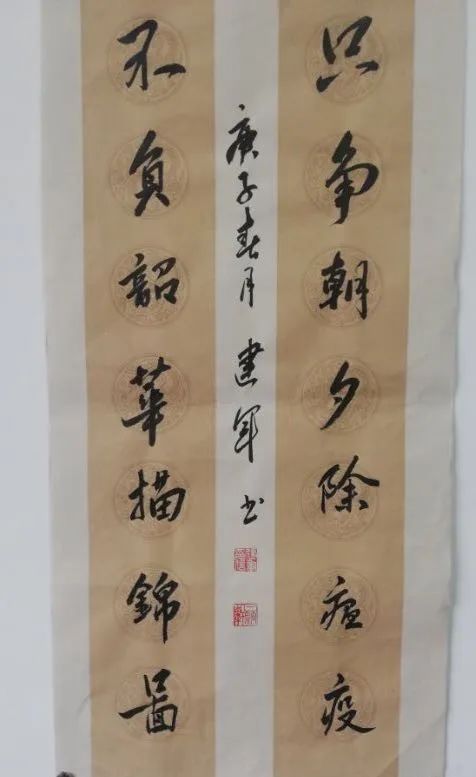 只争朝夕除瘟疫
不負韶華描錦啚
庚子春月建军书